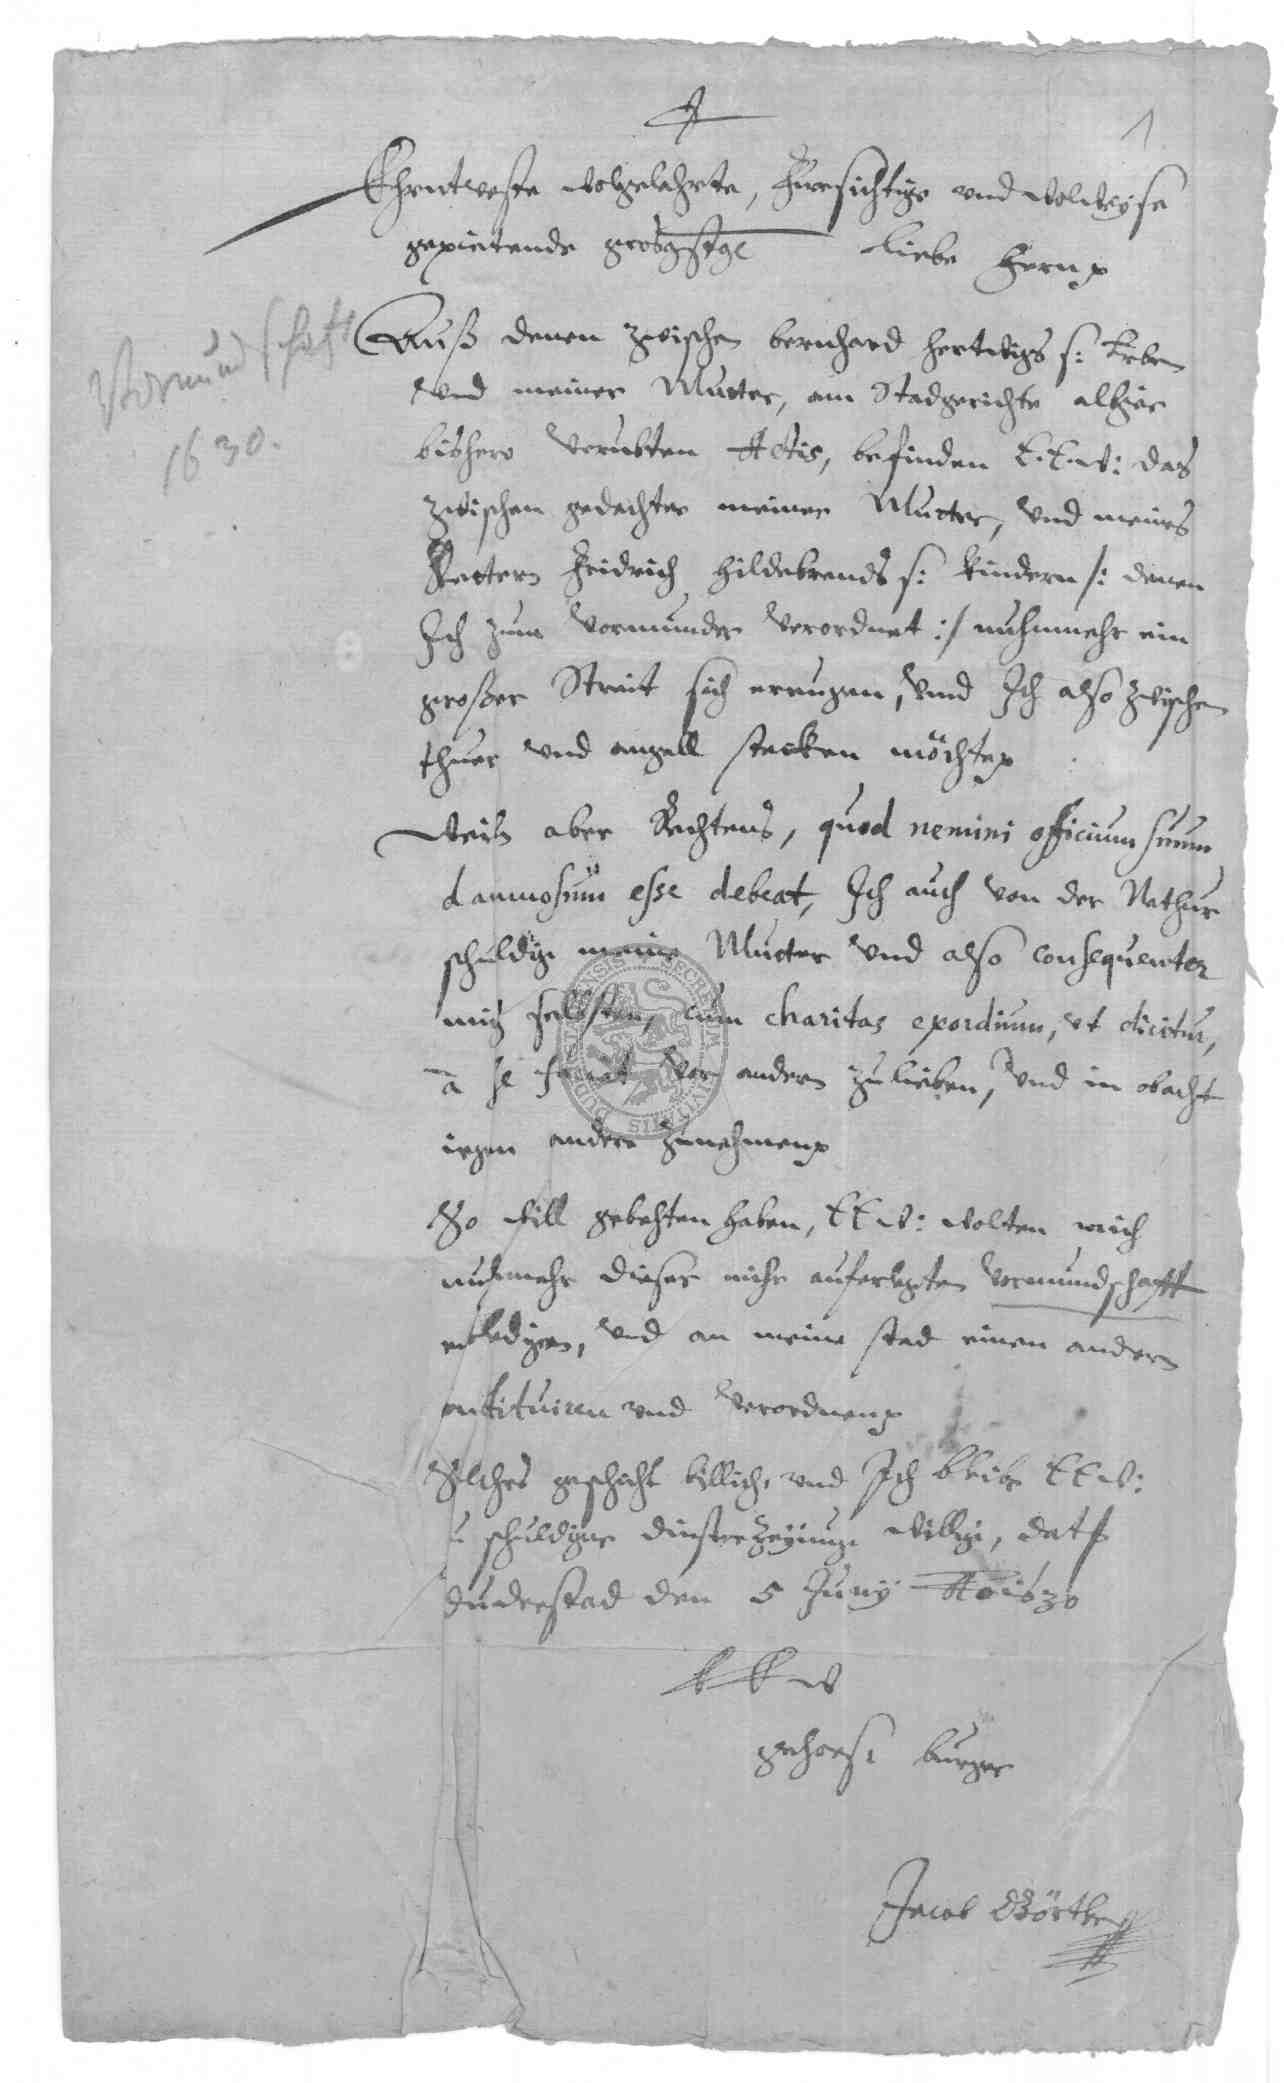 1
Ehrntveste Wolgelahrte, Fursichtige und Wolweyse
gepietende grosgstge liebe Hern p
Vormundschaft
1630.
Auß denen zwischen bernhard hertwigs s: Erben
Vnd meiner Mutter, am Stadgerichte alhier
bishero verubten Actis, befinden E.E.W: das
zwischen gedachter meiner Mutter, vnd meines
Vettern Fridrich Hildebrands s: kindern /: denen
Ich zum Vormunder verordnet :/ nuhnmehr ein
großer Streit sich ereugen, vnd Ich also zwischen
thuer vnd angell stecken möchte p
Weiln aber Rechtens, quod nemini officium suum
damnosum esse debeat, Ich auch von der Nathur
schuldig meine Mutter vnd also consequenter
mich selbsten, cum charitas exordium, vt dicitur,
à se vor andern zu lieben, vnd in obacht
andere zunehmen p
So will gebehten haben, EEW: wolten mich
nuhmehr dieser mihr auferlegten Vormundschafft
erledigen, vnd an meine stad einen andern
vnd verordnen p
Solches geschicht billich, vnd Ich bleibe EEW:
schuldiger dinsterzeigung willig, dat
Duderstad den 5 Juny Ao 1630
E E W
gehors: burger
Jacob